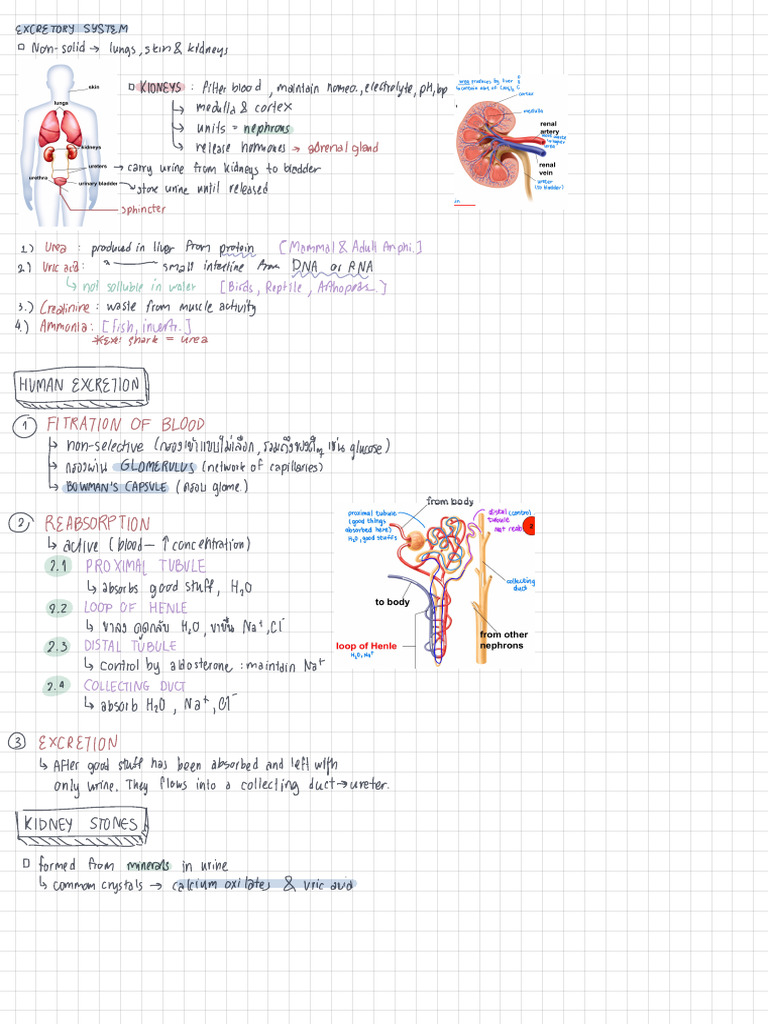 EXCRETORY SYSTEM
Non-solid → lungs, skin & kidneys
skin
lungs
kidneys
ureters
urethra
urinary bladder
sphincter
KIDNEYS : filter blood, maintain homeo., electrolyte, pH, bp
↳ medulla & cortex
↳ units = nephrons
↳ release hormones → adrenal gland
→ carry urine from kidneys to bladder
→ store urine until released
urea produces by liver
cortex
medulla
renal artery
renal vein
ureter
(to bladder)
1) Urea : produced in liver from protein [Mammal & Adult Amphi.]
2) Uric acid : " small intestine from DNA or RNA
↳ not solluble in water [Birds, Reptile, Arthopods.]
3.) Creatinine : waste from muscle activity
4.) Ammonia : [fish, invertr.]
*Exe: shark = urea
HUMAN EXCRETION
1 FITRATION OF BLOOD
↳ non-selective (กรองเข้าแบบไม่เลือก, รวมถึงพวกดีๆ เช่น glucose)
↳ กรองผ่าน GLOMERULUS (network of capillaries)
↳ BOWMAN'S CAPSULE (ครอบ glome.)
2 REABSORPTION
↳ active (blood – ↑ concentration)
2.1 PROXIMAL TUBULE
↳ absorbs good stuff, H₂O
2.2 LOOP OF HENLE
↳ ขาลง ดูดกลับ H₂O, ขาขึ้น Na⁺, Cl⁻
2.3 DISTAL TUBULE
↳ control by aldosterone : maintain Na⁺
2.4 COLLECTING DUCT
↳ absorb H₂O, Na⁺, Cl⁻
from body
proximal tubule
(good things
absorbed here)
H₂O, good stuffs
distal (control
tubule
not reab
2
collecting
duct
to body
loop of Henle
H₂O, Na⁺
from other
nephrons
3 EXCRETION
↳ After good stuff has been absorbed and left with
only urine. They flows into a collecting duct → ureter.
KIDNEY STONES
formed from minerals in urine
↳ common crystals → calcium oxilates & uric acid